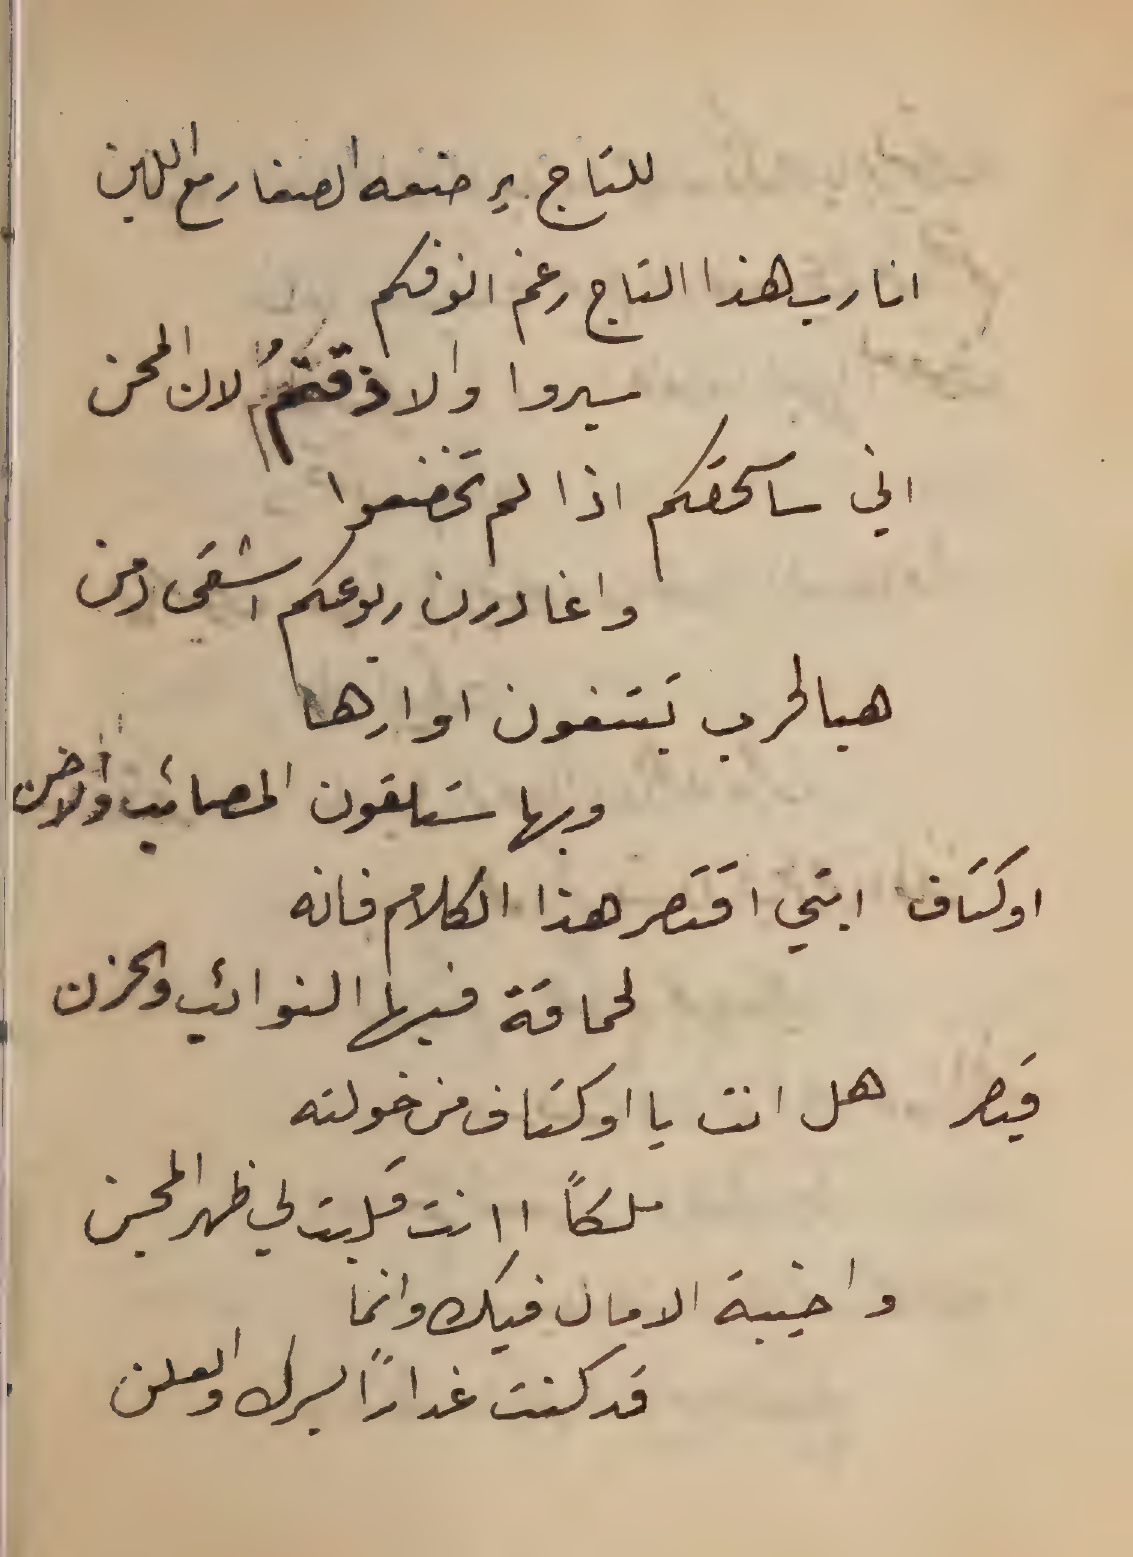 للتاج يرضعه الصغار مع اللبن
انا رب هذا التاج رغم انوفكم
سيروا والا ذقتمُ لان المحن
اني ساسحقكم اذا لم تخضعوا
واغادرن ربوعكم اشقى دمن
هيا لحرب تبتغون اوارها
وبها ستلقون المصائب والاحن
اوكتاف ابتي اقتصر هذا الكلام فانه
لحماقة فيها النوائب والحزن
قيصر هل انت يا اوكتاف من خولته
ملكاً اانت قلبت لي ظهر المجن
واخيبة الامال فيك وانما
قد كنت غداراً لسرك والعلن